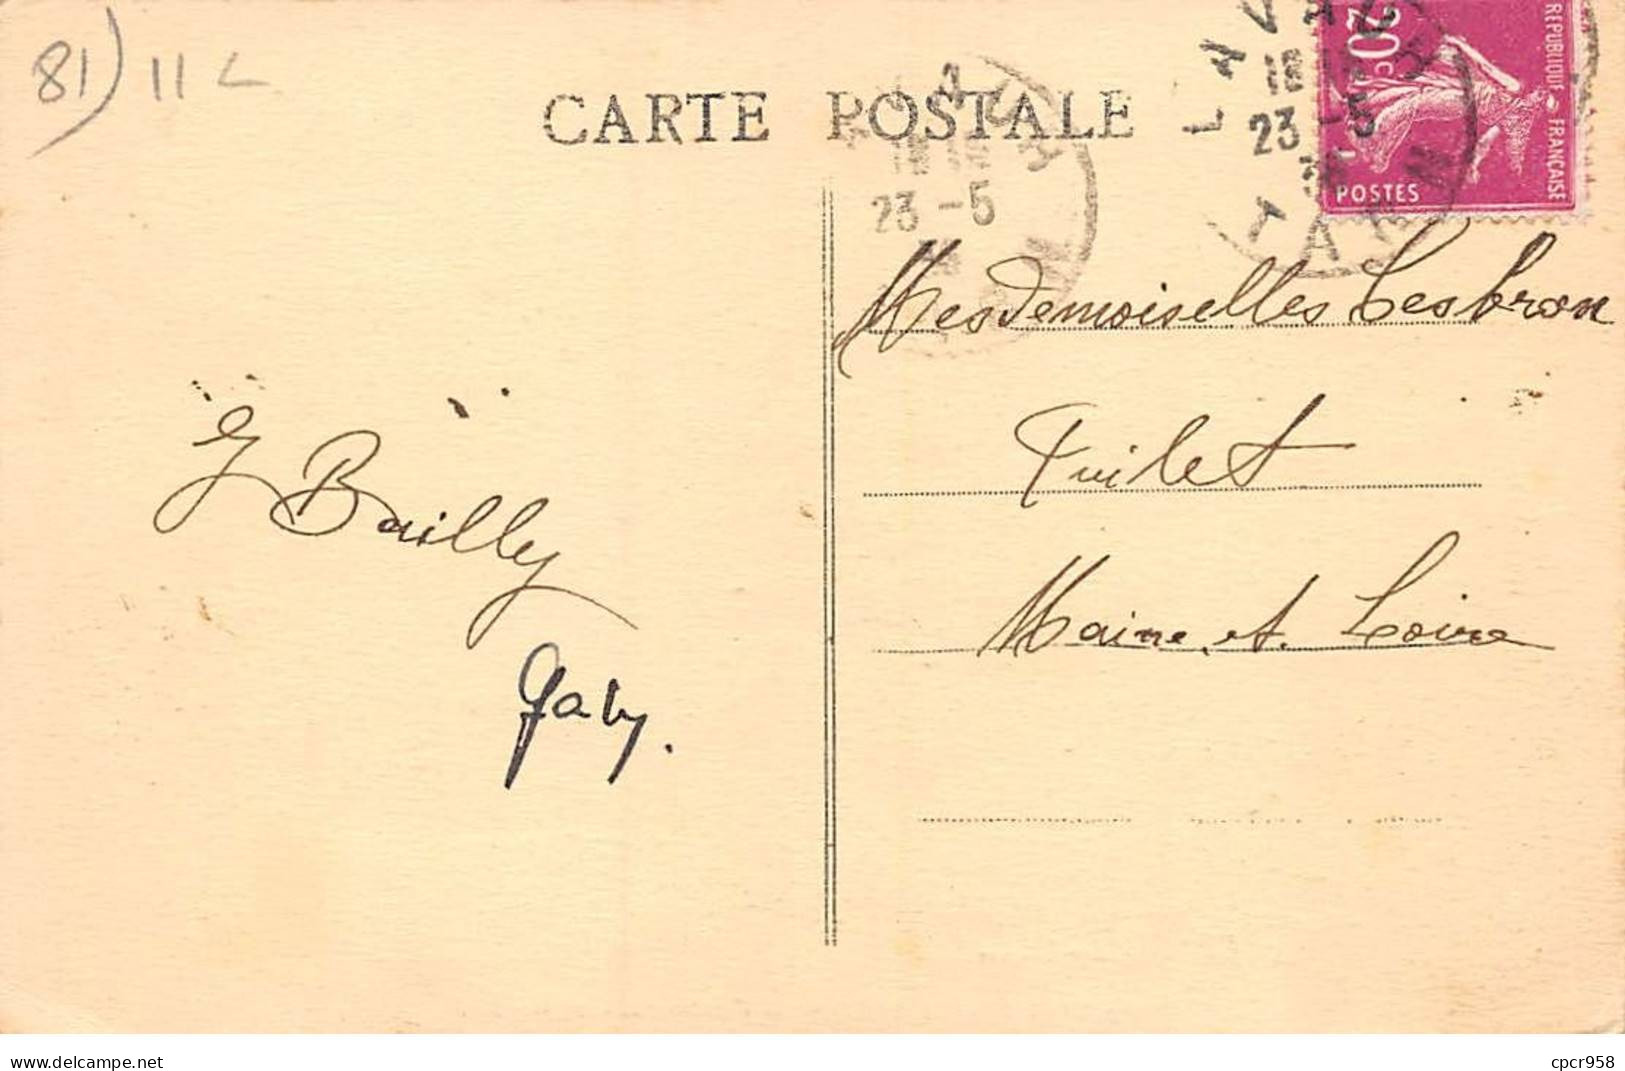 81) 11 L
CARTE POSTALE
LAVAUR
18
23 -5
TARN
20c
REPUBLIQUE FRANCAISE
POSTES
23 -5
Mesdemoiselles Lesbron
Tuilet
Maine et Loire
G Bailly
Gaby.
delcampe.net
cpcr958